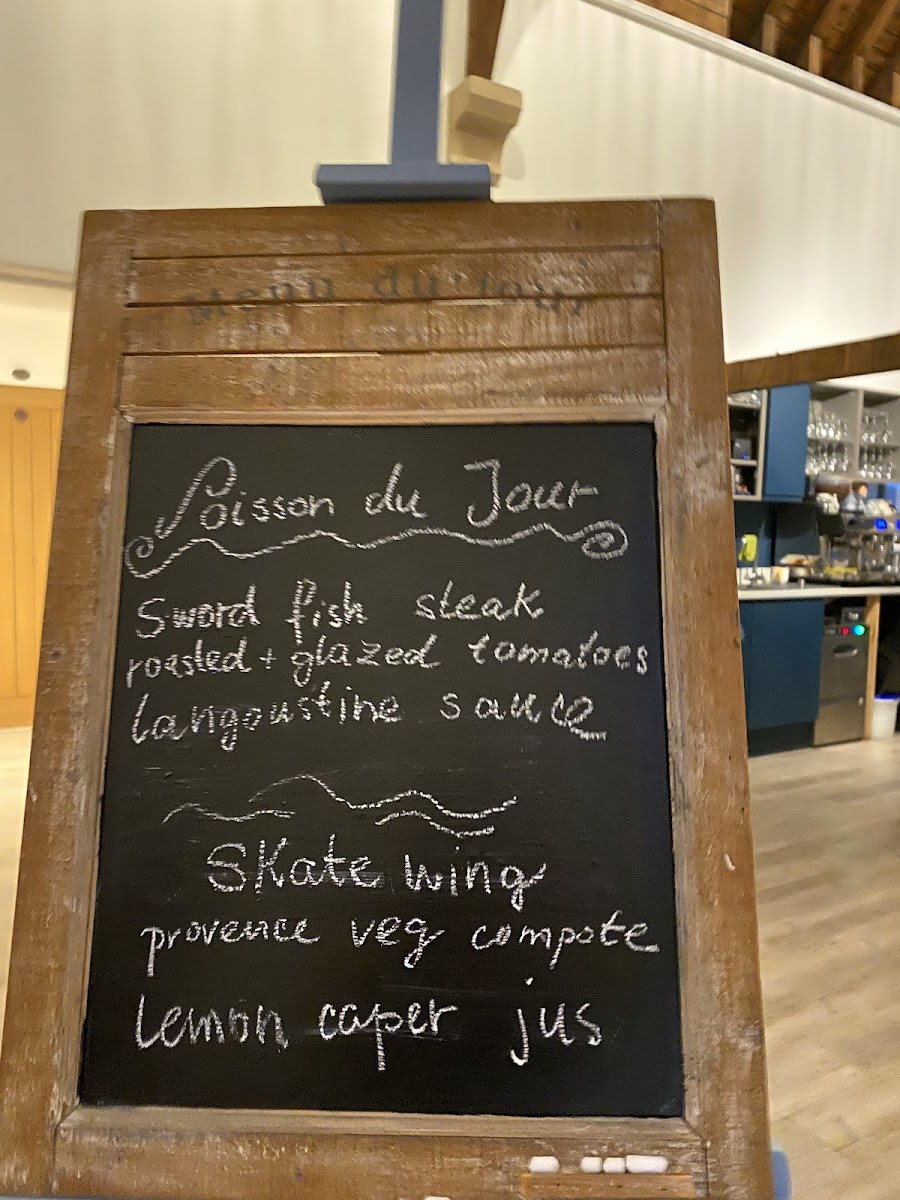 Menu du jour
Poisson du Jour
Sword fish steak
roasted + glazed tomatoes
langoustine sauce
Skate wing
provence veg compote
lemon caper jus